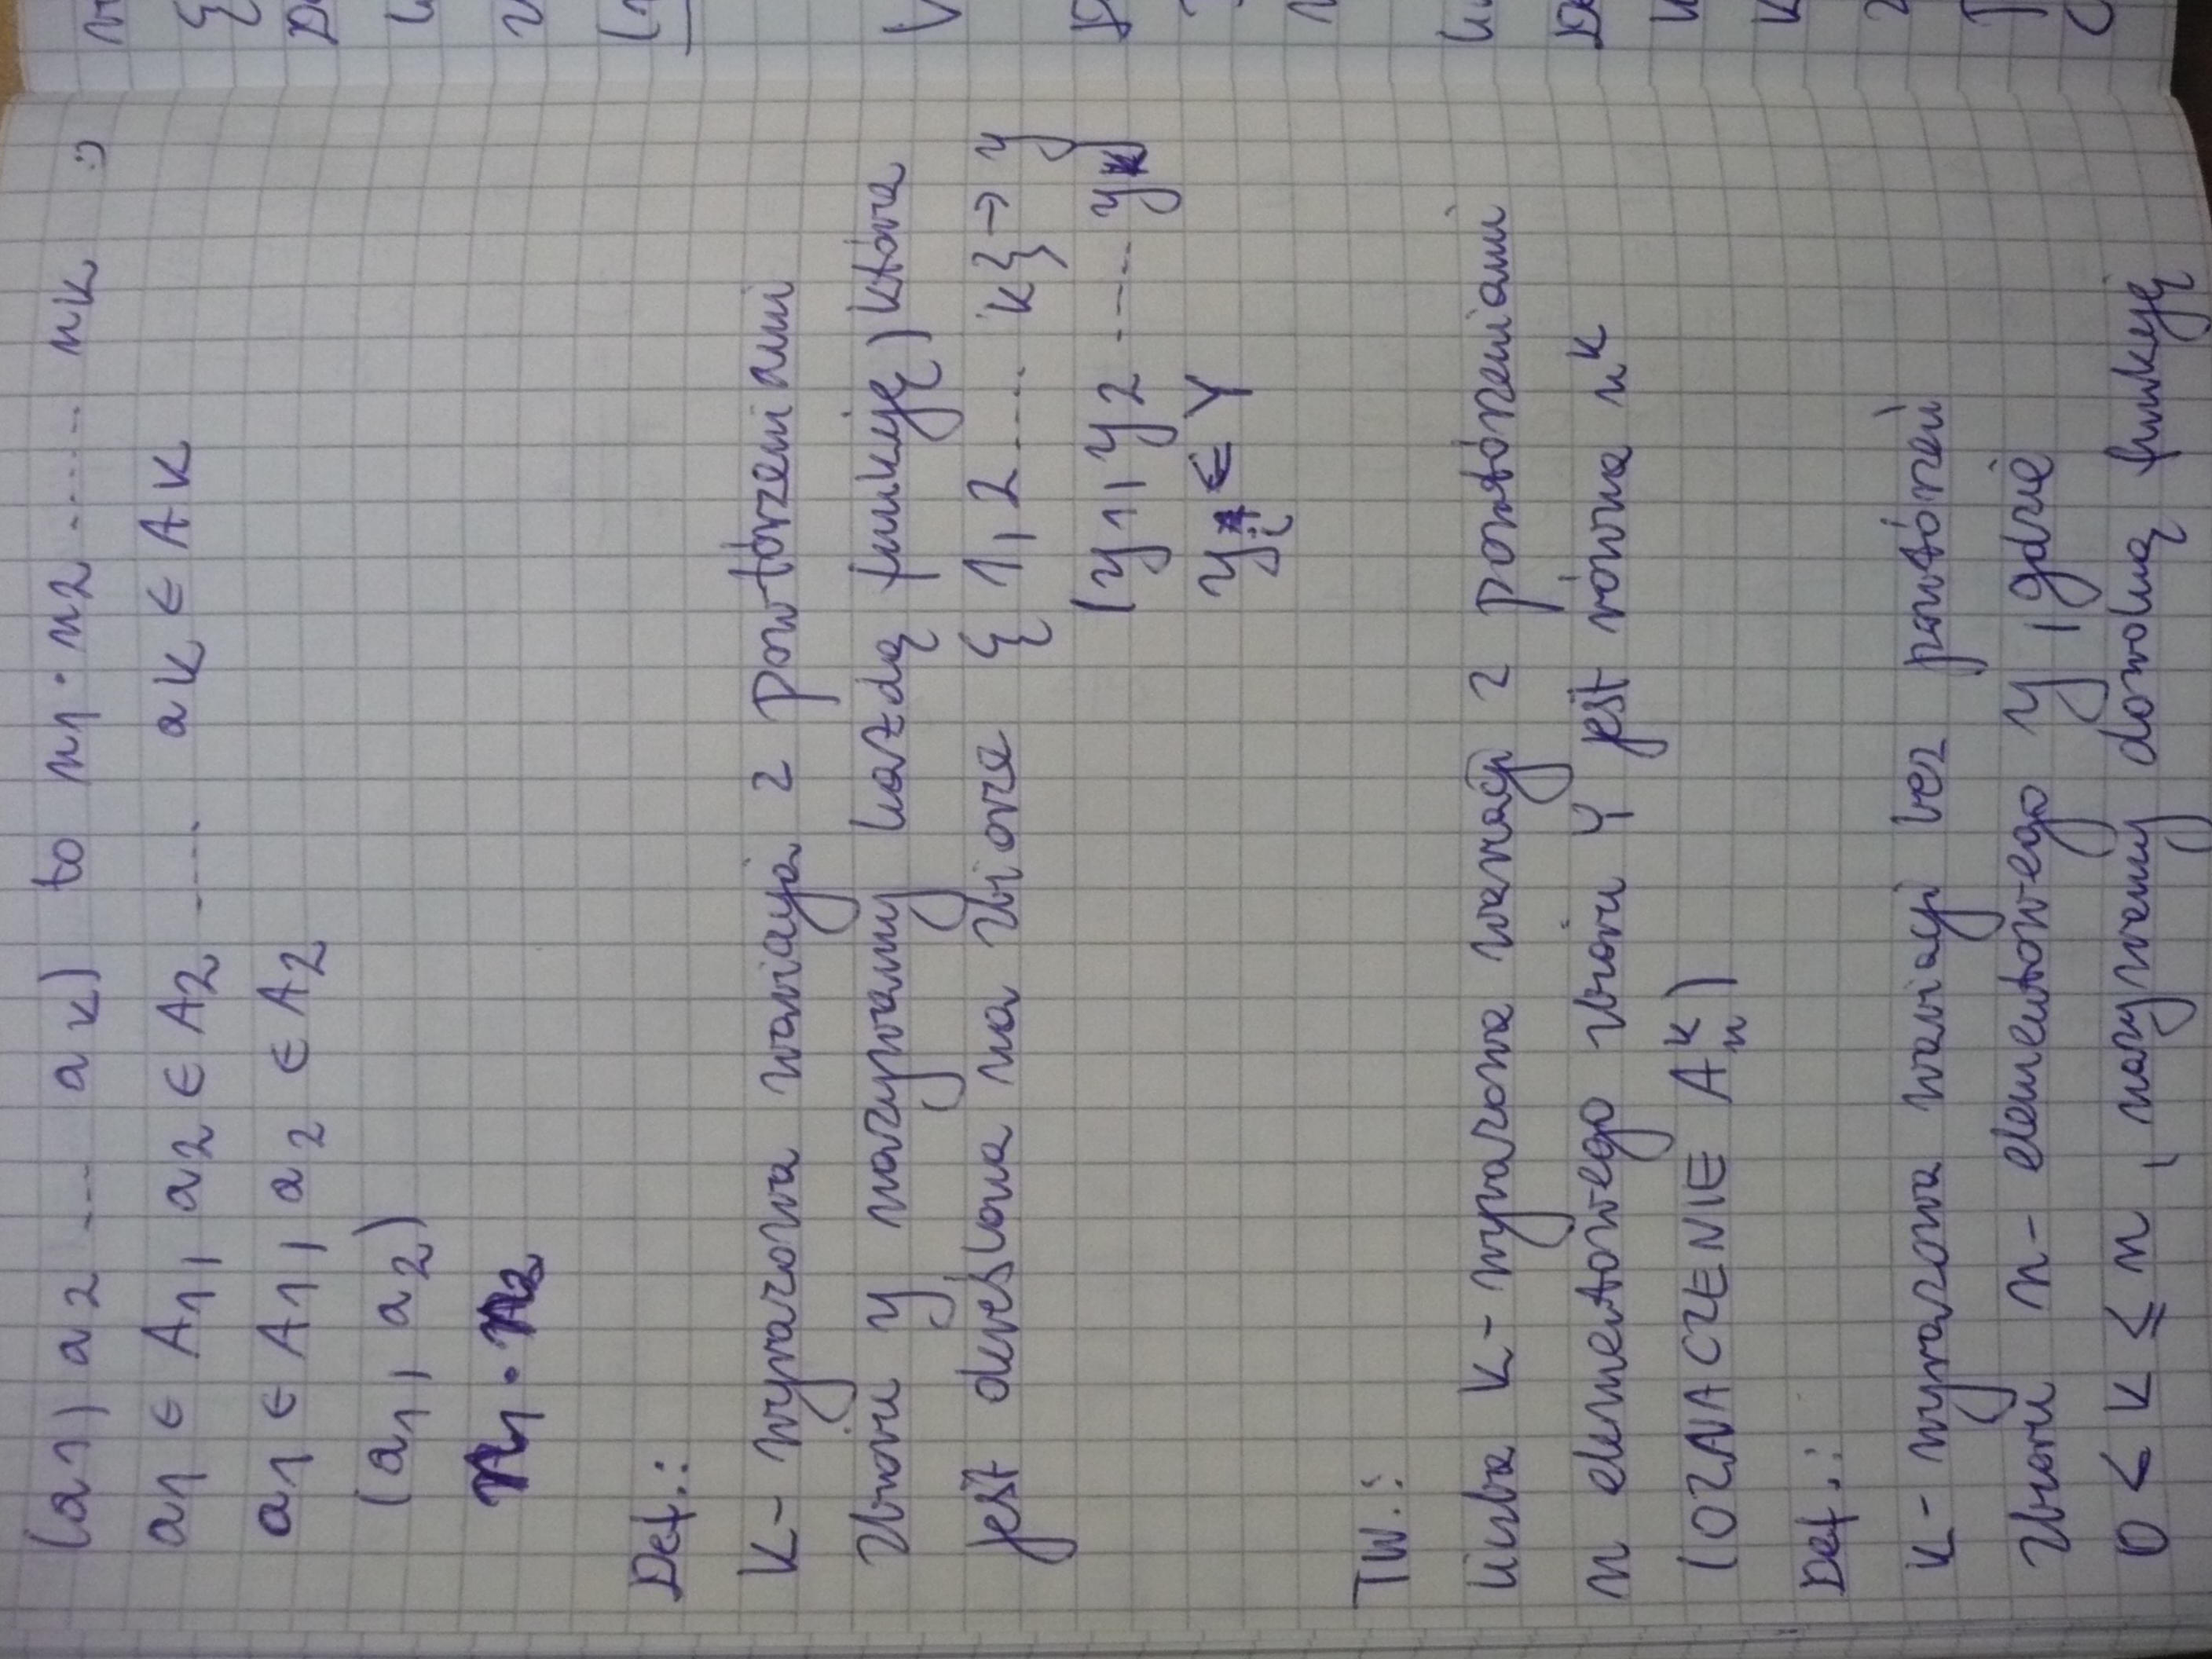 (a1) a2 ... ak) to n1 · n2 ...... nk :)
a1 ∈ A1, a2 ∈ A2 ..... ak ∈ Ak
a1 ∈ A1, a2 ∈ A2
(a1, a2)
n1 · n2
Def.:
K - wyrazowa wariacja z powtórzeniami
zbioru y nazywamy każdą funkcję) która
jest określona na zbiorze { 1, 2 .... k} → y
(y1, y2 ..... yk)
yi ∈ Y
TW.:
liczba K - wyrazowa wariacji z powtórzeniami
n elementowego zbioru Y jest równa n^k
(OZNACZENIE A_n^k)
Def.:
K - wyrazowa wariacji bez powtórzeń
zbioru n - elementowego y, gdzie
0 < K ≤ n, nazywamy dowolną funkcję